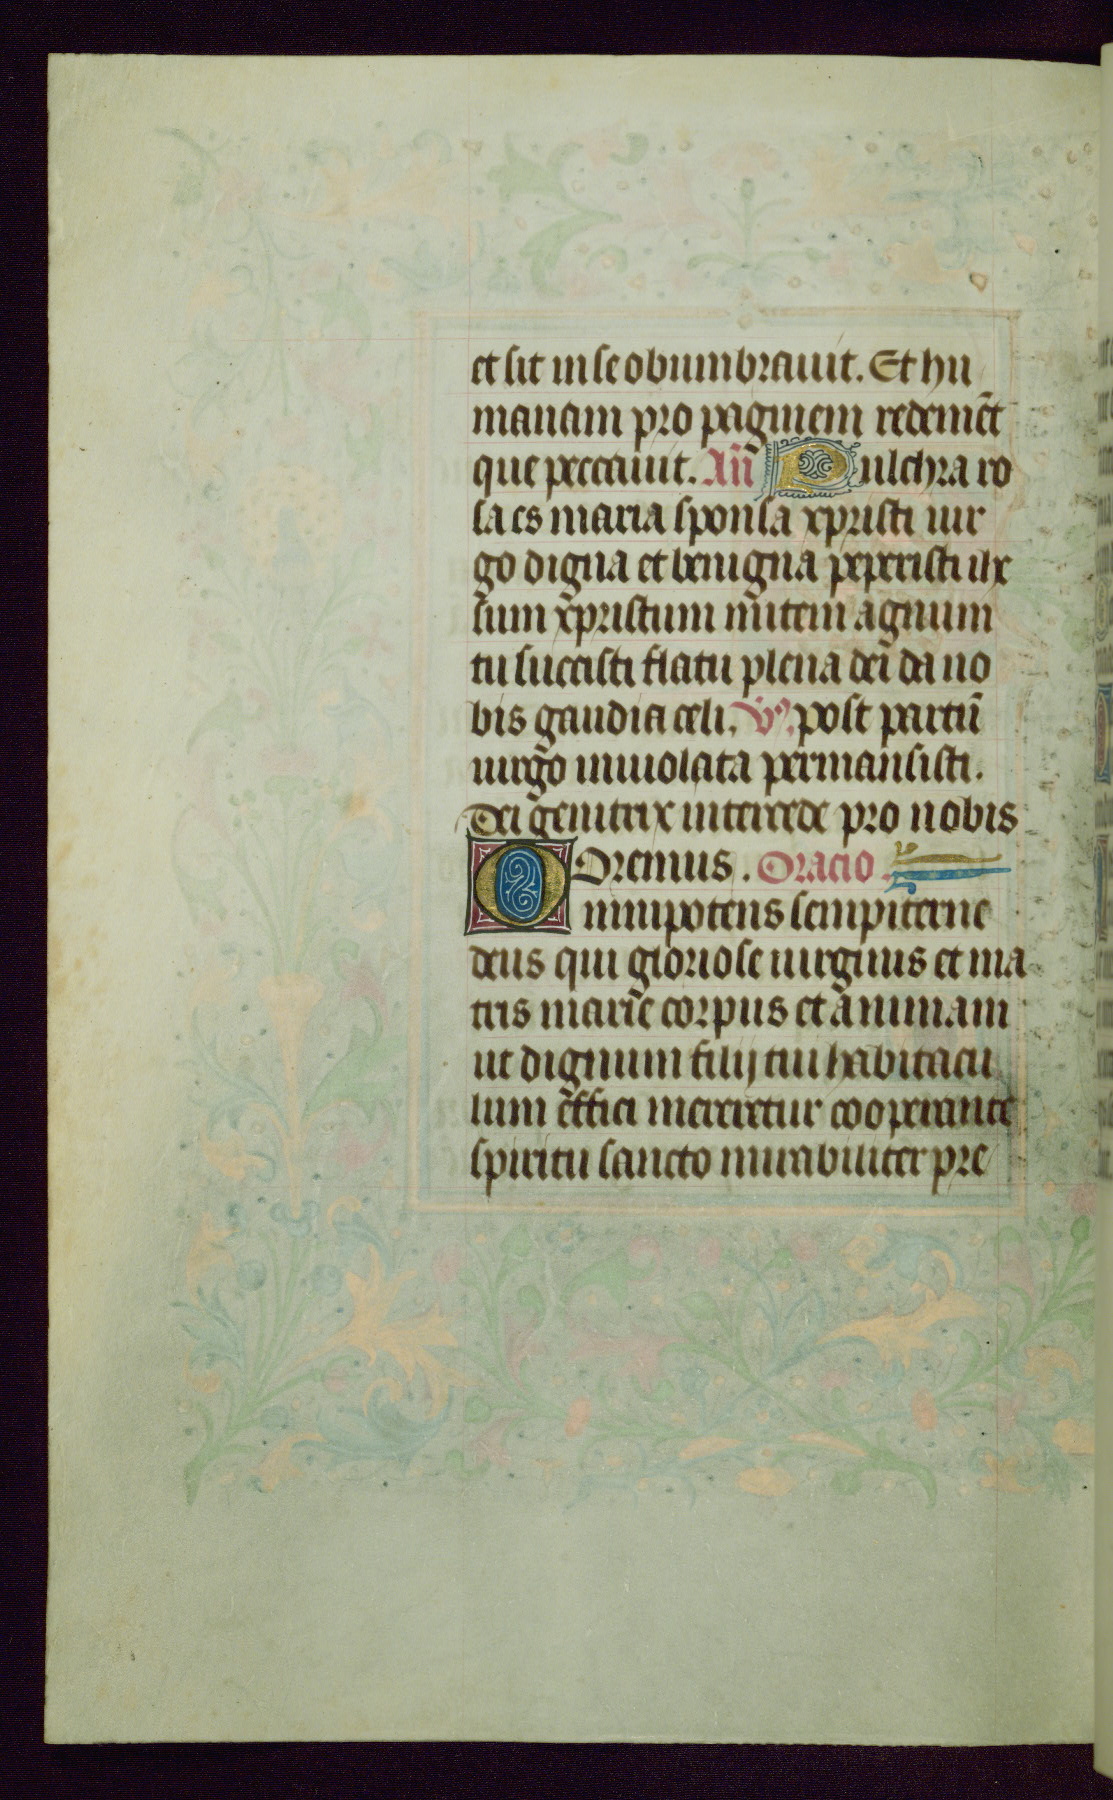 et sit in se obumbrauit. Et hu
manam pro paginem redemēt
que peccauit. Añ Pulchra ro
sa es maria sponsa xpristi uir
go digna et benigna peperisti
sum xpristum mitem agnum
tu succisti flatu plena dei da no
bis gaudia celi. V̉. post partū
uirgo inuiolata permansisti.
Dei genitrix intercede pro nobis
Oremus. Oracio.
Omnipotens sempiterne
deus qui gloriose uirginis et ma
tris marie corpus et animam
ut dignum filij tui habitacu
lum effici mereretur cooperante
spiritu sancto mirabiliter pre